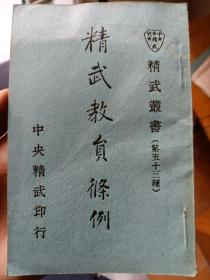 精武叢書(第五十三種)
精武教員條例
中央精武印行